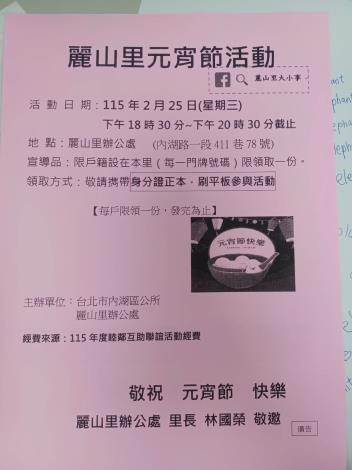 麗山里元宵節活動
麗山里大小事
活動日期：115年2月25日(星期三)
下午18時30分~下午20時30分截止
地點：麗山里辦公處 (內湖路一段411巷78號)
宣導品：限戶籍設在本里（每一門牌號碼）限領取一份。
領取方式：敬請攜帶身分證正本，刷平板參與活動
【每戶限領一份，發完為止】
元宵節快樂
主辦單位：台北市內湖區公所
麗山里辦公處
經費來源：115年度睦鄰互助聯誼活動經費
敬祝 元宵節 快樂
麗山里辦公處 里長 林國榮 敬邀
廣告